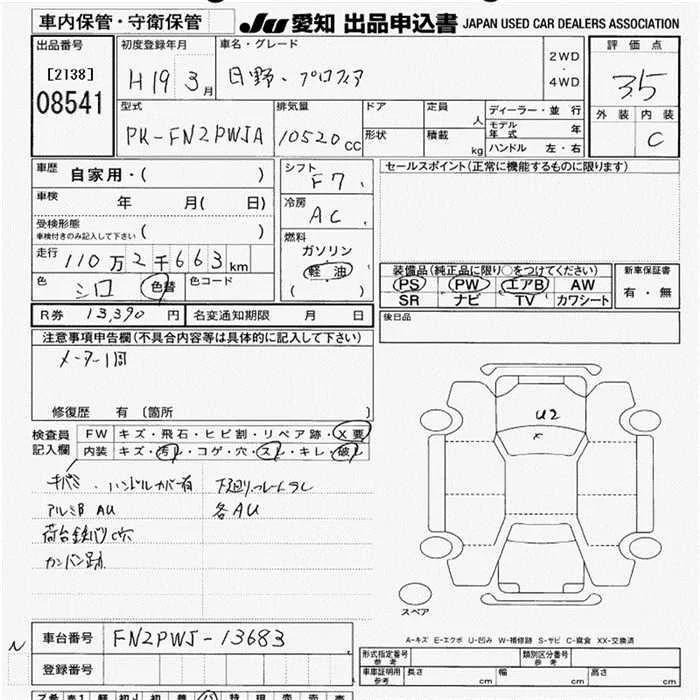 車内保管・守衛保管
JU 愛知 出品申込書 JAPAN USED CAR DEALERS ASSOCIATION
出品番号
[2138]
08541
初度登録年月
H19 3月
車名・グレード
日野、プロフィア
2WD
・
4WD
評価点
3.5
外装 内装
C
型式
PK-FN2PWJA
排気量
10520cc
ドア
形状
定員
人
積載
kg
ディーラー・並行
モデル年式 年
ハンドル 左・右
車歴
自家用・( )
車検
年 月( 日)
受検形態
車検付きのみ記入して下さい
( )
走行
110万2千663km
色
シロ
色替
色コード
シフト
F7
冷房
AC
燃料
ガソリン
軽油
( )
セールスポイント(正常に機能するものに限ります)
装備品(純正品に限り○をつけてください)
PS PW エアB AW
SR ナビ TV カワシート
新車保証書
有・無
後日品
R券 13,390 円
名変通知期限 月 日
注意事項申告欄(不具合内容等は具体的に記入して下さい)
メーター1回
修復歴 有 [箇所 ]
検査員
記入欄
FW キズ・飛石・ヒビ割・リペア跡・X要
内装 キズ・汚レ・コゲ・穴・スレ・キレ・破レ
キバミ、ハンドルカバー有
アルミB AU
カンバン跡
各AU
U2
×
スペア
A-キズ E-エクボ U-凹み W-補修跡 S-サビ C-腐食 XX-交換済
N
車台番号
FN2PWJ-13683
登録番号
形式指定番号
参考
類別区分番号
参考
車庫証明用
参考
長さ cm
幅 cm
高さ cm